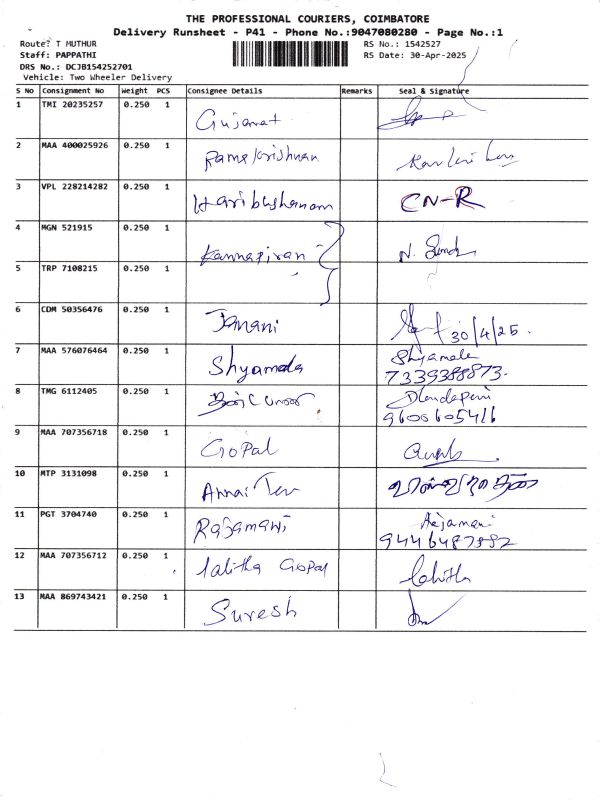 THE PROFESSIONAL COURIERS, COIMBATORE
Delivery Runsheet - P41 - Phone No.:9047080280 - Page No.:1
Route? T MUTHUR RS No.: 1542527
Staff: PAPPATHI RS Date: 30-Apr-2025
DRS No.: DCJB154252701
Vehicle: Two Wheeler Delivery
S No Consignment No Weight PCS Consignee Details Remarks Seal & Signature
1 TMI 20235257 0.250 1 Gujarat
2 MAA 400025926 0.250 1 Ramakrishnan
3 VPL 228214282 0.250 1 Haribushanam CN-R
4 MGN 521915 0.250 1 Kannapiran
5 TRP 7108215 0.250 1
6 CDM 50356476 0.250 1 Janani 30/4/25.
7 MAA 576076464 0.250 1 Shyamala Shyamala
7339388873.
8 TMG 6112405 0.250 1 Dhandapani
9600605416
9 MAA 707356718 0.250 1 Gopal
10 MTP 3131098 0.250 1 Annai
11 PGT 3704740 0.250 1 Rajamani Rajamani
9446487882
12 MAA 707356712 0.250 1 Lalitha Gopal Lalitha
13 MAA 869743421 0.250 1 Suresh